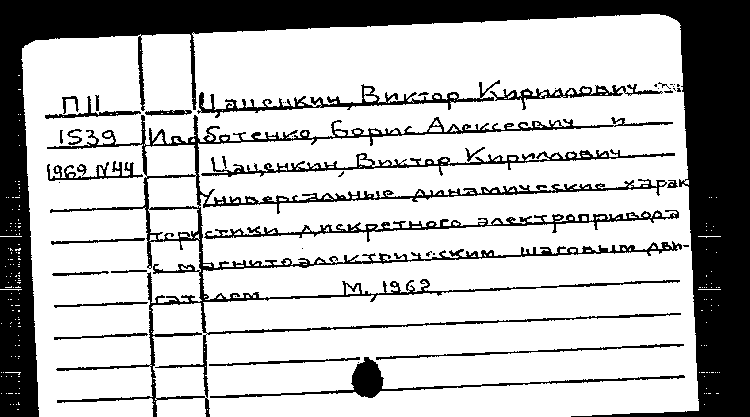 П11 Цаценкин, Виктор Кириллович
1539 Ивоботенко, Борис Алексеевич и
1969 N44 Цаценкин, Виктор Кириллович
Универсальные динамические харак
теристики дискретного электропривода
с магнитоэлектрическим шаговым дви-
гателем. М., 1962.